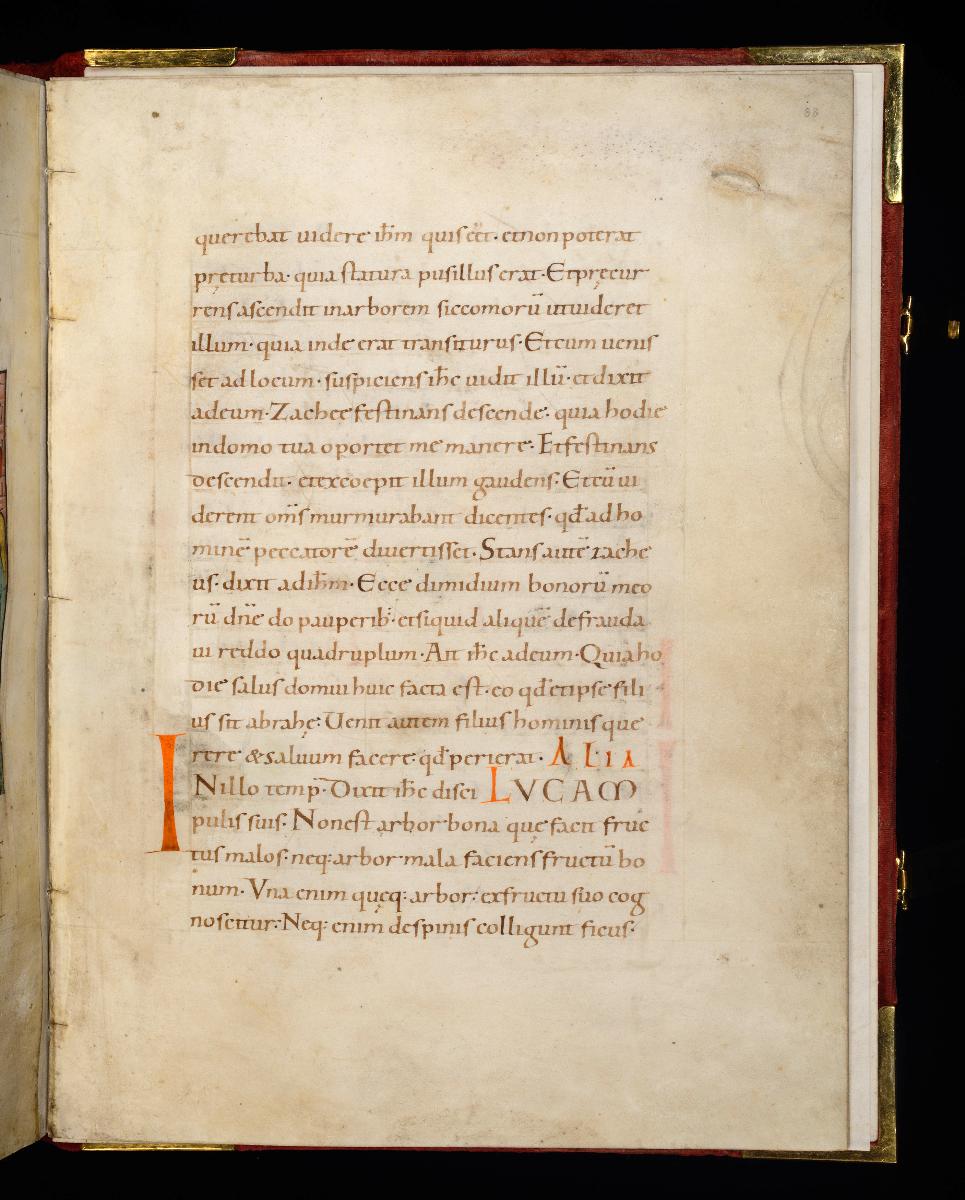 88
querebat uidere ihm quis eet. et non poterat
pre turba. quia statura pusillus erat. Et precur
rens ascendit in arborem siccomorū ut uideret
illum. quia inde erat transiturus. Et cum uenis
set ad locum. suspiciens ihc uidit illū. et dixit
ad eum. Zachee festinans descende. quia hodie
in domo tua oportet me manere. Et festinans
descendit. et excoepit illum gaudens. Et cū ui
derent om̄s murmurabant dicentes. qđ ad ho
minē peccatorē diuertisset. Stans autē zache
us. dixit ad ihm. Ecce dimidium bonorū meo
rū dn̄e do pauperib; et si quid aliquē defrauda
ui reddo quadruplum. Ait ihc ad eum. Quia ho
die salus domui huic facta est. eo qđ et ipse fili
us sit abrahę. Uenit autem filius hominis que
rere & saluum facere. qđ perierat. ALIA
IN illo temp̄. Dixit ihc disci LUCAM
pulis suis. Non est arbor bona quę facit fruc
tus malos. neq: arbor mala faciens fructū bo
num. Vna enim quęq: arbor. ex fructu suo cog
noscitur. Neq: enim de spinis colligunt ficus.